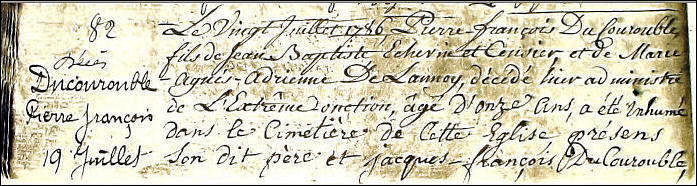 82
Décès
Ducourouble
Pierre françois
19 Juillet
Le Vingt Juillet 1786 Pierre-françois Du Courouble
fils de Jean Baptiste Echevin et Censier et de Marie
Agnès-Adrienne De Lannoy, décédé hier administré
de L'Extrême Onction, âgé D'onze Ans, a été Inhumé
dans le Cimetière de Cette Eglise présens
Son dit père et jacques-françois Du Courouble,